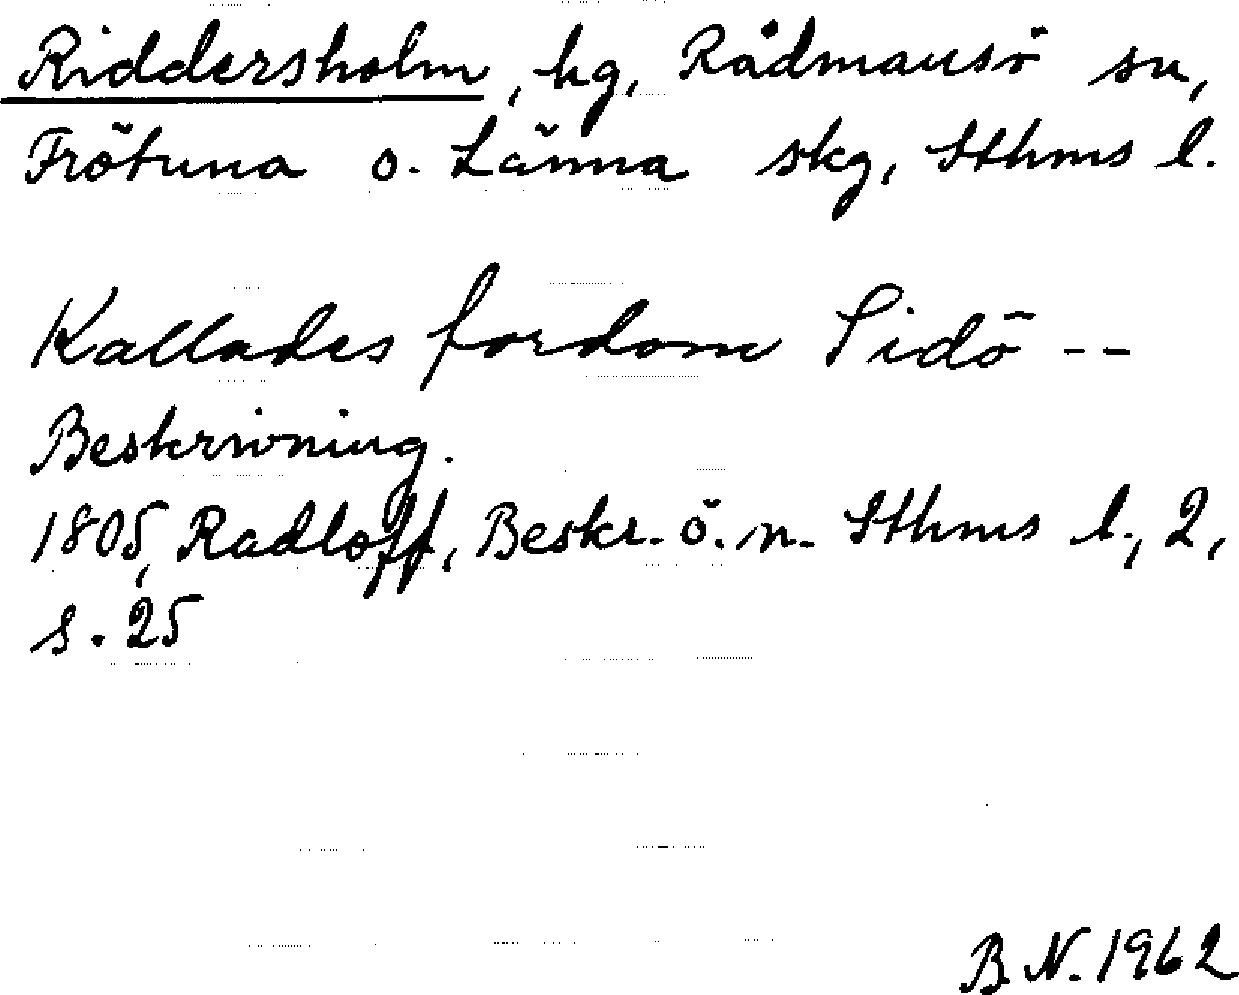 Riddersholm, hg, Rådmansö sn,
Frötuna o. Länna skg, Sthms l.
Kallades fordom Sidö --
Beskrivning.
1805, Radloff, Beskr. ö. n. Sthms l., 2,
s. 25
B.N. 1962